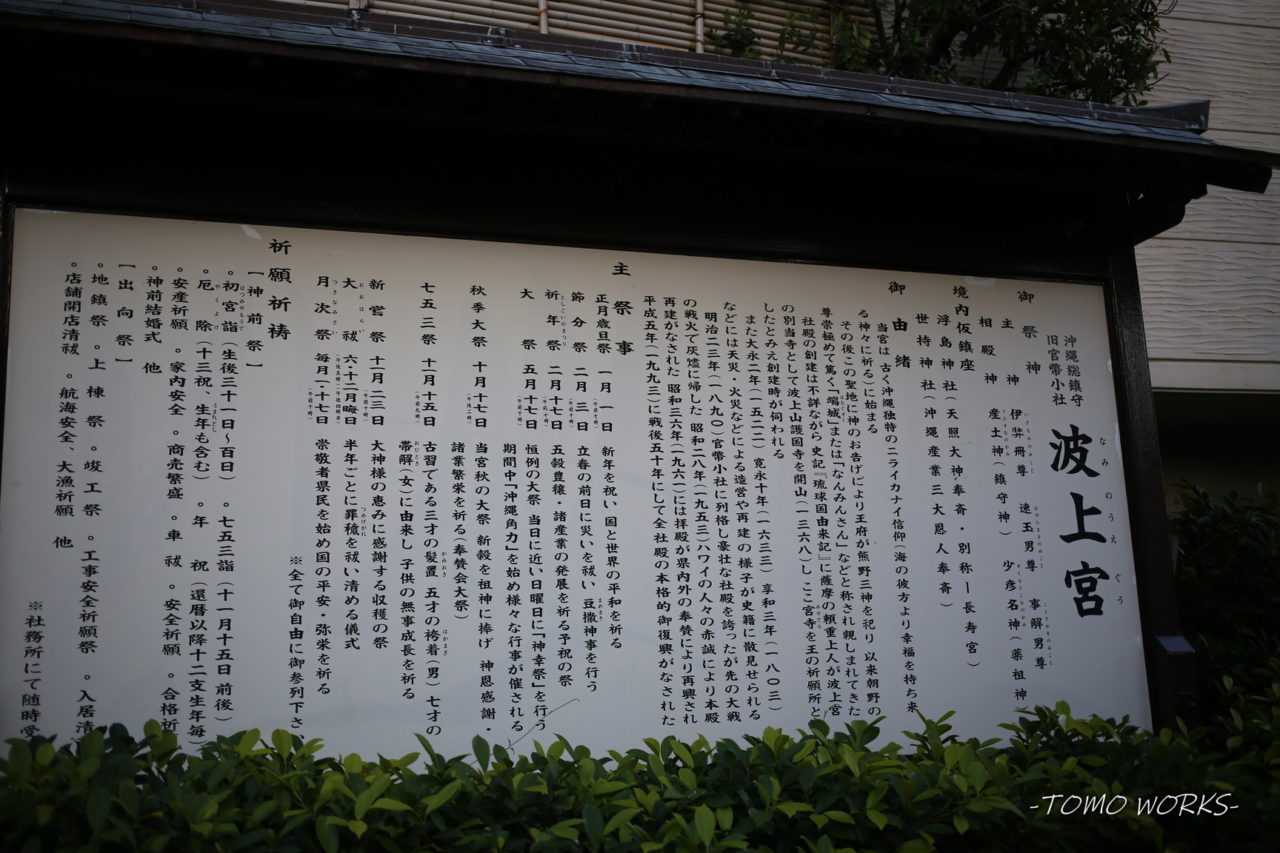 沖縄総鎮守
旧官幣小社
波上宮
なみのうえぐう
御祭神
主神 伊弉冊尊 速玉男尊 事解男尊
相殿神 産土神(鎮守神) 少彦名神(薬祖神
境内仮鎮座
浮島神社(天照大神奉斎・別称ー長寿宮)
世持神社(沖縄産業三大恩人奉斎)
御由緒
当宮は古く沖縄独特のニライカナイ信仰(海の彼方より幸福を持ち来
る神々に祈る)に始まる
その後この聖地に神のお告げにより王府が熊野三神を祀り 以来朝野の
尊崇極めて篤く「端城」または「なんみんさん」などと称され親しまれてきた
社殿の創建は不詳ながら 史記『琉球国由来記』に薩摩の頼重上人が波上宮
の別当寺として波上山護国寺を開山(一三六八)し ここ宮寺を王の祈願所と
したとみえ創建時が伺われる
また大永二年(一五二二) 寛永十年(一六三三) 享和三年(一八〇三)
などには天災・火災などによる造営や再建の様子が史籍に散見せられる
明治二三年(一八九〇)官幣小社に列格し豪壮な社殿を誇ったが先の大戦
の戦火で灰燼に帰した 昭和二八年(一九五三)ハワイの人々の赤誠により本殿
再建がなされた 昭和三六年(一九六一)には拝殿が県内外の奉賛により再興され
平成五年(一九九三)に戦後五十年にして全社殿の本格的御復興がなされた
主祭事
正月歳旦祭 一月一日 新年を祝い 国と世界の平和を祈る
節分祭 二月三日 立春の前日に災いを祓い 豆撒神事を行う
祈年祭 二月十七日 五穀豊穣・諸産業の発展を祈る予祝の祭
としごいのまつり
大祭 五月十七日 恒例の大祭 当日に近い日曜に「神幸祭」を行う
期間中「沖縄角力」を始め様々な行事が催される
秋季大祭 十月十七日 当宮秋の大祭 新穀を祖神に捧げ 神恩感謝・
諸業繁栄を祈る(奉賛会大祭)
七五三祭 十一月十五日 古習である三才の髪置 五才の袴着(男)七才の
帯解(女)に由来し 子供の無事成長を祈る
新嘗祭 十一月二十三日 大神様の恵みに感謝する収穫の祭
大祓 六・十二月晦日 半年ごとに罪穢を祓い清める儀式
おおはらい
月次祭 毎月一・十七日 崇敬者県民を始め国の平安・弥栄を祈る
つきなみさい
※全て御自由に御参列下さい
祈願祈祷
【神前祭】
。初宮詣(生後三十一日～百日) 。七五三詣(十一月十五日前後)
はつみやもうで
。厄除(十三祝、生年も含む) 。年祝(還暦以降十二支生年毎)
やくよけ
。安産祈願 。家内安全 。商売繁盛 。車祓 。安全祈願 。合格祈
。神前結婚式 他
【出向祭】
。地鎮祭 。上棟祭 。竣工祭 。工事安全祈願祭 。入居清
。店舗開店清祓 。航海安全、大漁祈願 他
※社務所にて随時受
-TOMO WORKS-